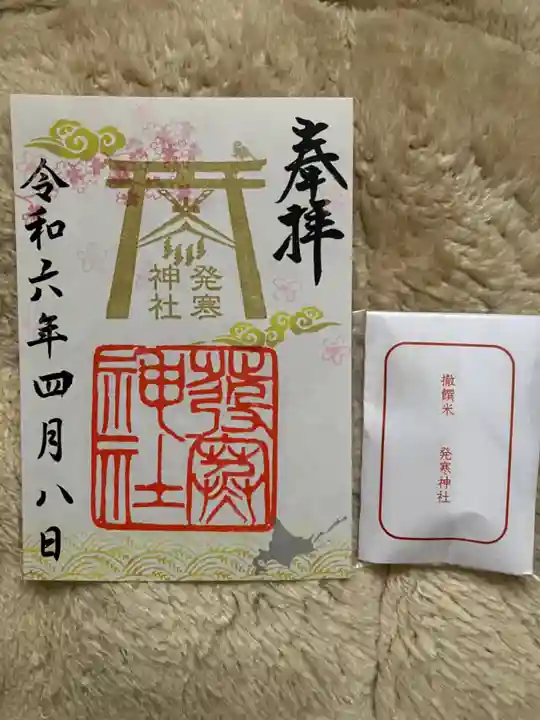 奉拝
発寒
神社
發寒
神社
令和六年四月八日
撤饌米 発寒神社